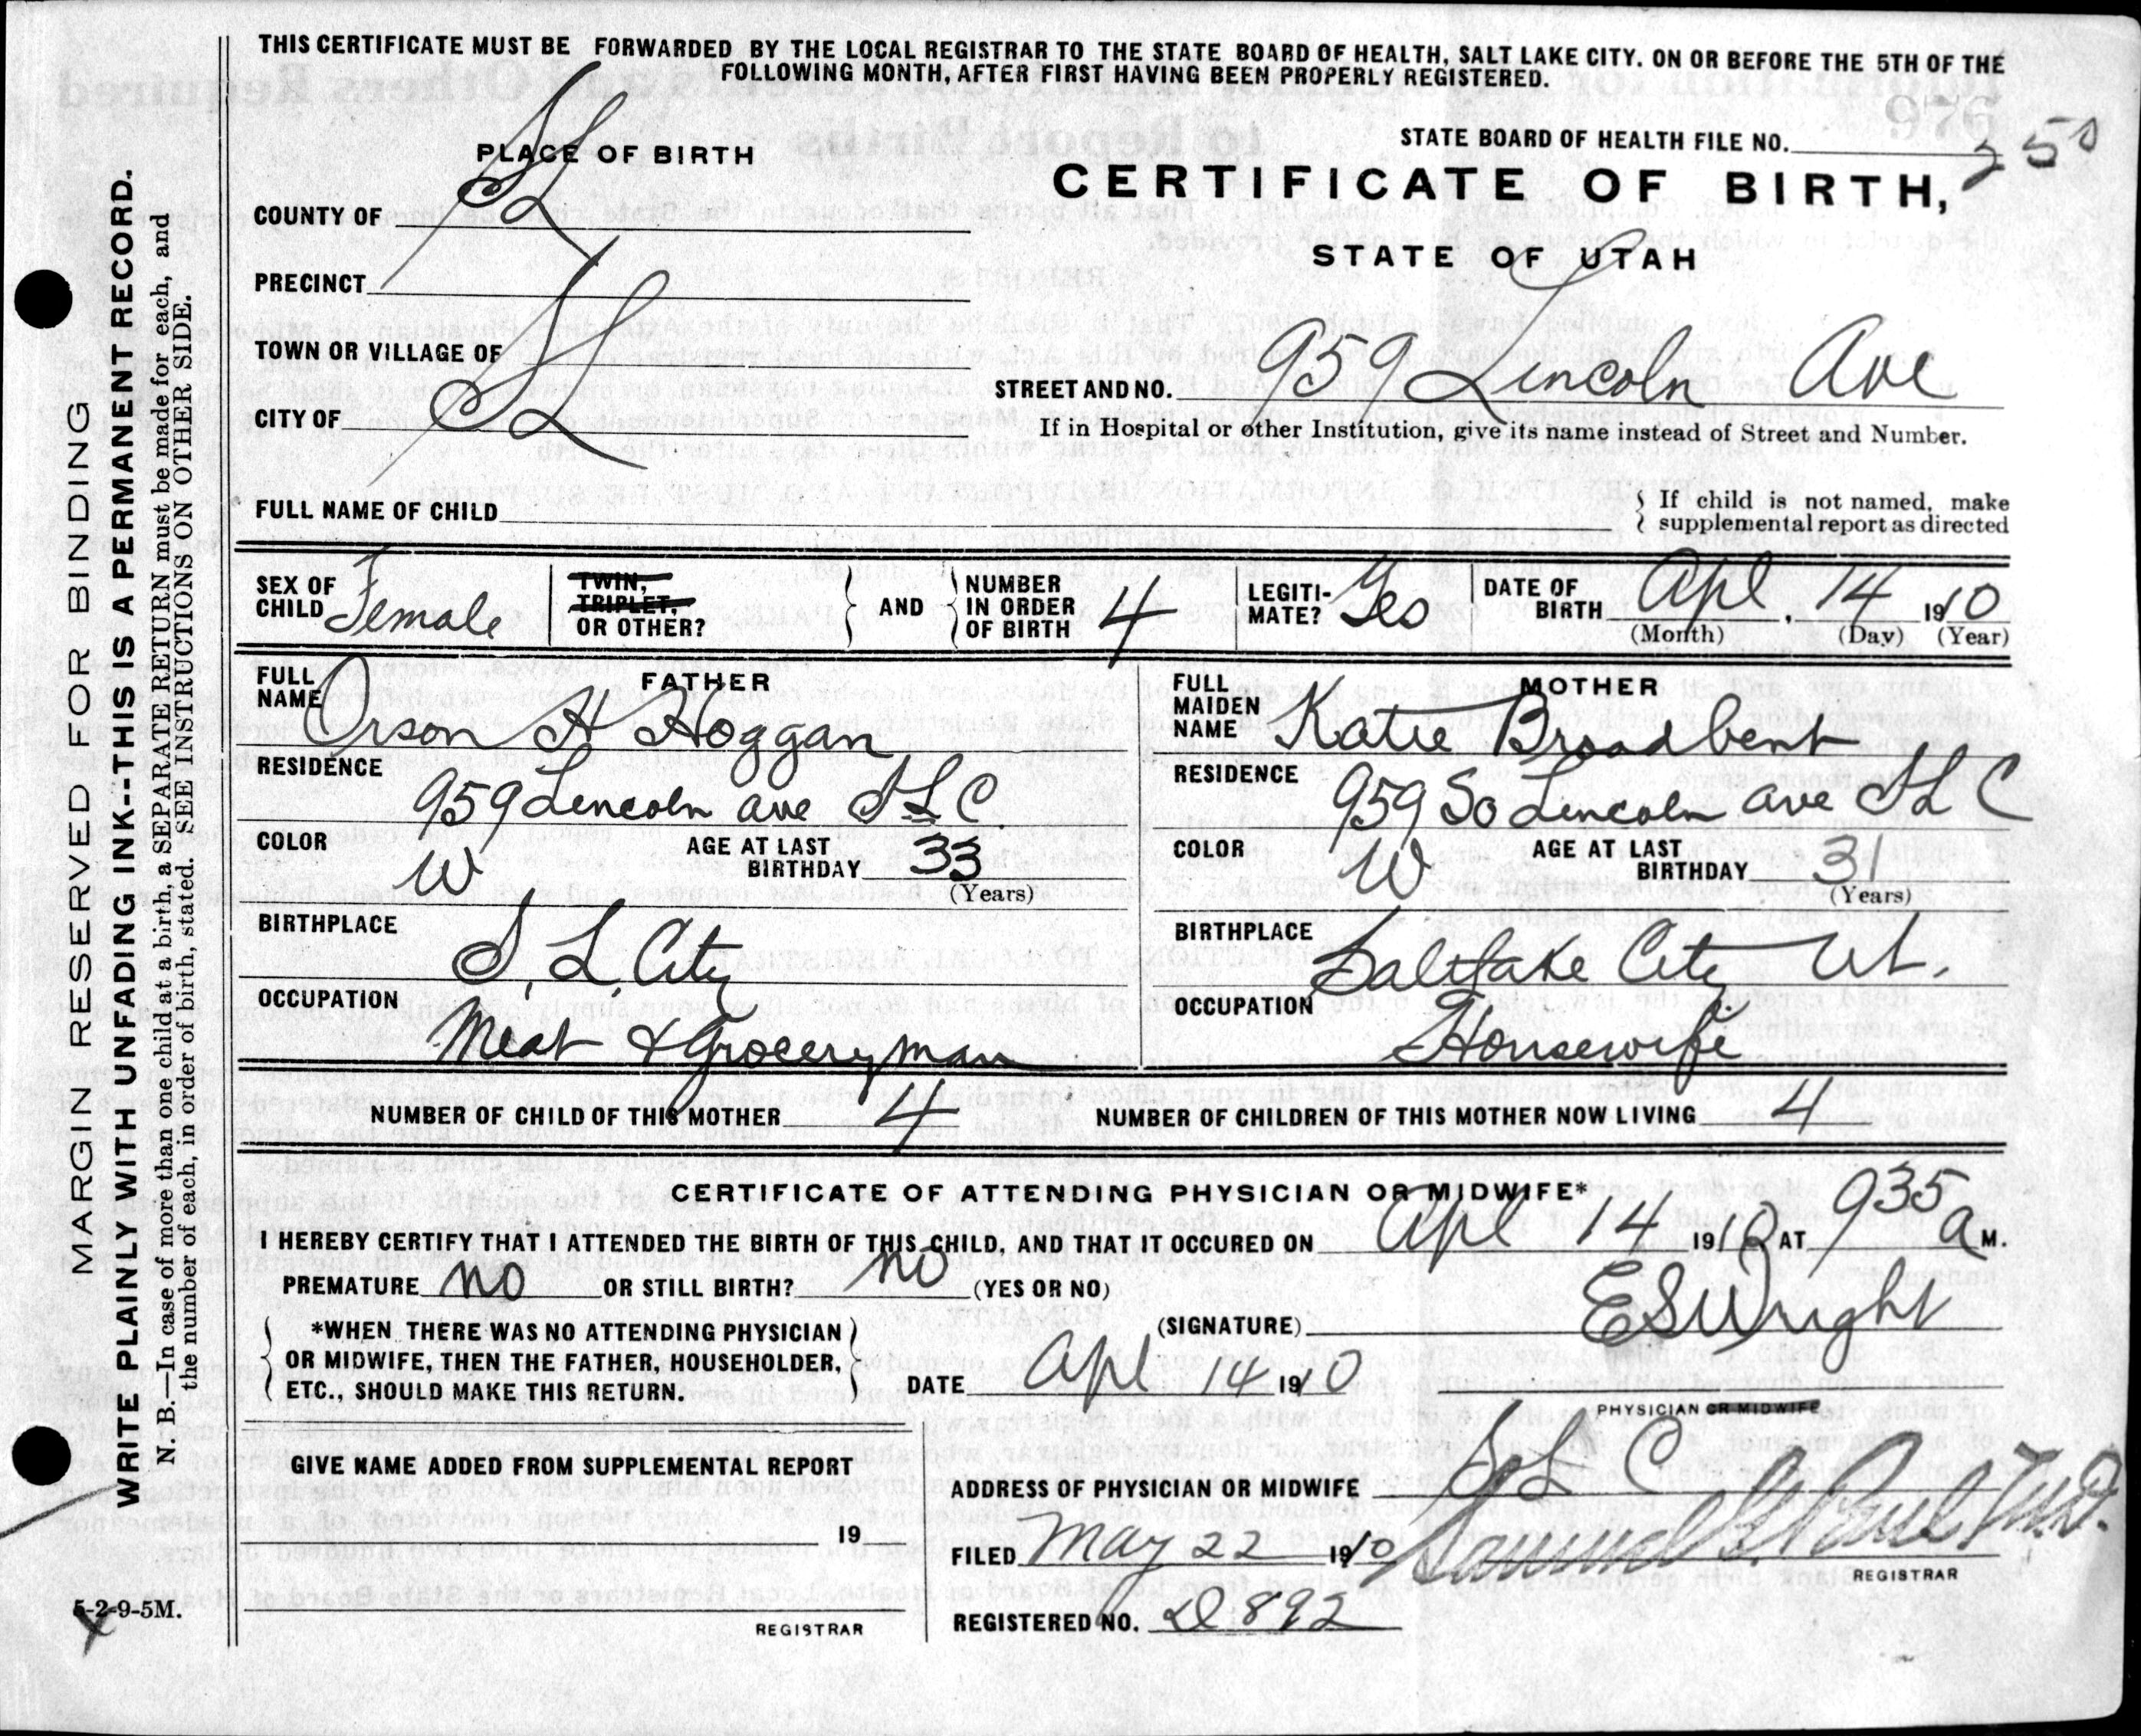 THIS CERTIFICATE MUST BE FORWARDED BY THE LOCAL REGISTRAR TO THE STATE BOARD OF HEALTH, SALT LAKE CITY. ON OR BEFORE THE 5TH OF THE
FOLLOWING MONTH, AFTER FIRST HAVING BEEN PROPERLY REGISTERED.
PLACE OF BIRTH
STATE BOARD OF HEALTH FILE NO.
CERTIFICATE OF BIRTH,
STATE OF UTAH
COUNTY OF SL
PRECINCT
TOWN OR VILLAGE OF
CITY OF SL
STREET AND NO. 959 Lincoln Ave
If in Hospital or other Institution, give its name instead of Street and Number.
FULL NAME OF CHILD
{ If child is not named, make
supplemental report as directed
SEX OF CHILD Female
TWIN, TRIPLET, OR OTHER?
AND
NUMBER IN ORDER OF BIRTH 4
LEGITI-MATE? Yes
DATE OF BIRTH Apl. 14 1910
(Month) (Day) (Year)
FATHER
FULL NAME Orson H Hoggan
RESIDENCE
959 Lincoln ave SLC
COLOR W
AGE AT LAST BIRTHDAY 33
(Years)
BIRTHPLACE
S. L. City
OCCUPATION
Meat & Groceryman
MOTHER
FULL MAIDEN NAME Katie Broadbent
RESIDENCE 959 So Lincoln ave SLC
COLOR W
AGE AT LAST BIRTHDAY 31
(Years)
BIRTHPLACE
Salt Lake City Ut.
OCCUPATION
Housewife
NUMBER OF CHILD OF THIS MOTHER 4
NUMBER OF CHILDREN OF THIS MOTHER NOW LIVING 4
CERTIFICATE OF ATTENDING PHYSICIAN OR MIDWIFE*
I HEREBY CERTIFY THAT I ATTENDED THE BIRTH OF THIS CHILD, AND THAT IT OCCURED ON Apl 14 1910 AT 935 a M.
PREMATURE no OR STILL BIRTH? no (YES OR NO)
*WHEN THERE WAS NO ATTENDING PHYSICIAN
OR MIDWIFE, THEN THE FATHER, HOUSEHOLDER,
ETC., SHOULD MAKE THIS RETURN.
(SIGNATURE) ES Wright
DATE Apl 14 1910
PHYSICIAN OR MIDWIFE
GIVE NAME ADDED FROM SUPPLEMENTAL REPORT
19
REGISTRAR
ADDRESS OF PHYSICIAN OR MIDWIFE SLC
FILED May 22 1910
Samuel G. Paul M.D.
REGISTRAR
REGISTERED NO. D 892
MARGIN RESERVED FOR BINDING
WRITE PLAINLY WITH UNFADING INK--THIS IS A PERMANENT RECORD.
N. B.—In case of more than one child at a birth, a SEPARATE RETURN must be made for each, and
the number of each, in order of birth, stated. SEE INSTRUCTIONS ON OTHER SIDE.
5-2-9-5M.